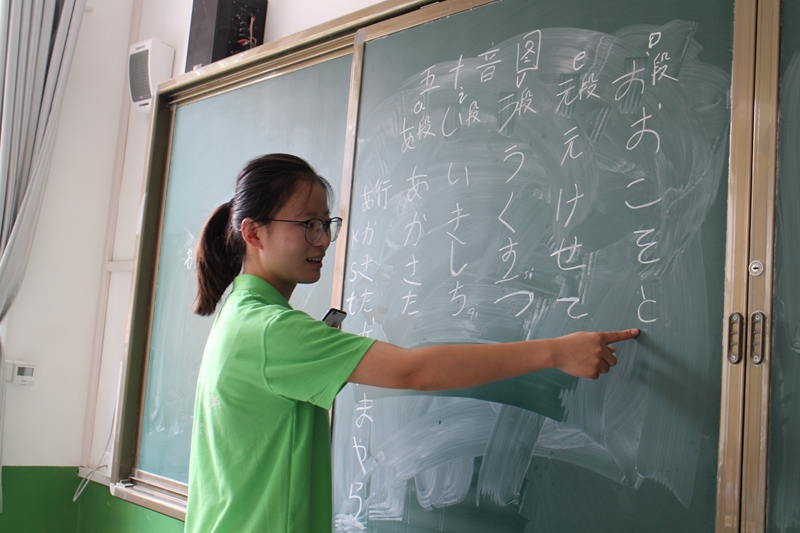 五十音图
あ行
かさた
k s t
まやら
a
あ段
あかさた
i
い段
いきしち
う段
うくすつ
e
え段
えけせて
o
お段
おこそと